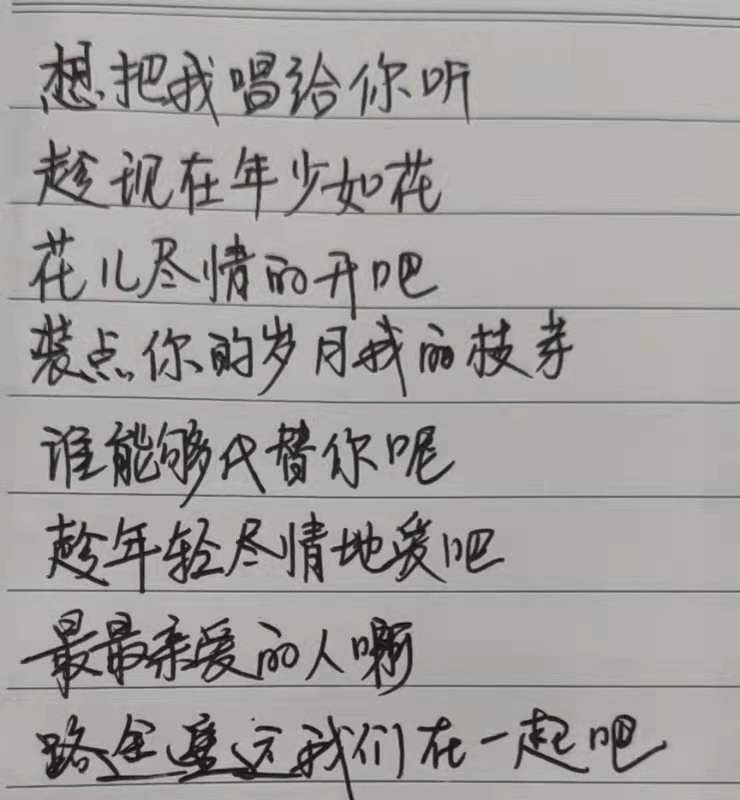 想把我唱给你听
趁现在年少如花
花儿尽情的开吧
装点你的岁月我的枝芽
谁能够代替你呢
趁年轻尽情地爱吧
最最亲爱的人啊
路途遥远我们在一起吧